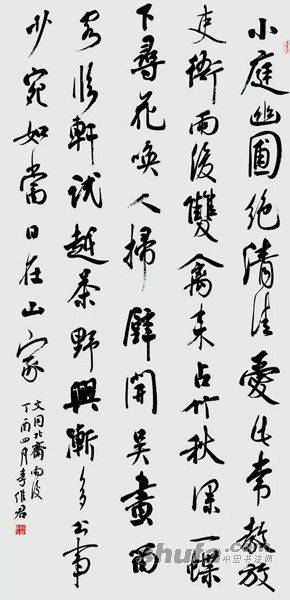 小庭幽圃絶清佳愛此常教放
吏衙雨後雙禽来占竹秋深一蝶
下尋花唤人掃壁開吴畫留
客临軒試越茶野興漸多公事
少宛如當日在山家
文同北齋雨後
丁酉四月李
shufa.com